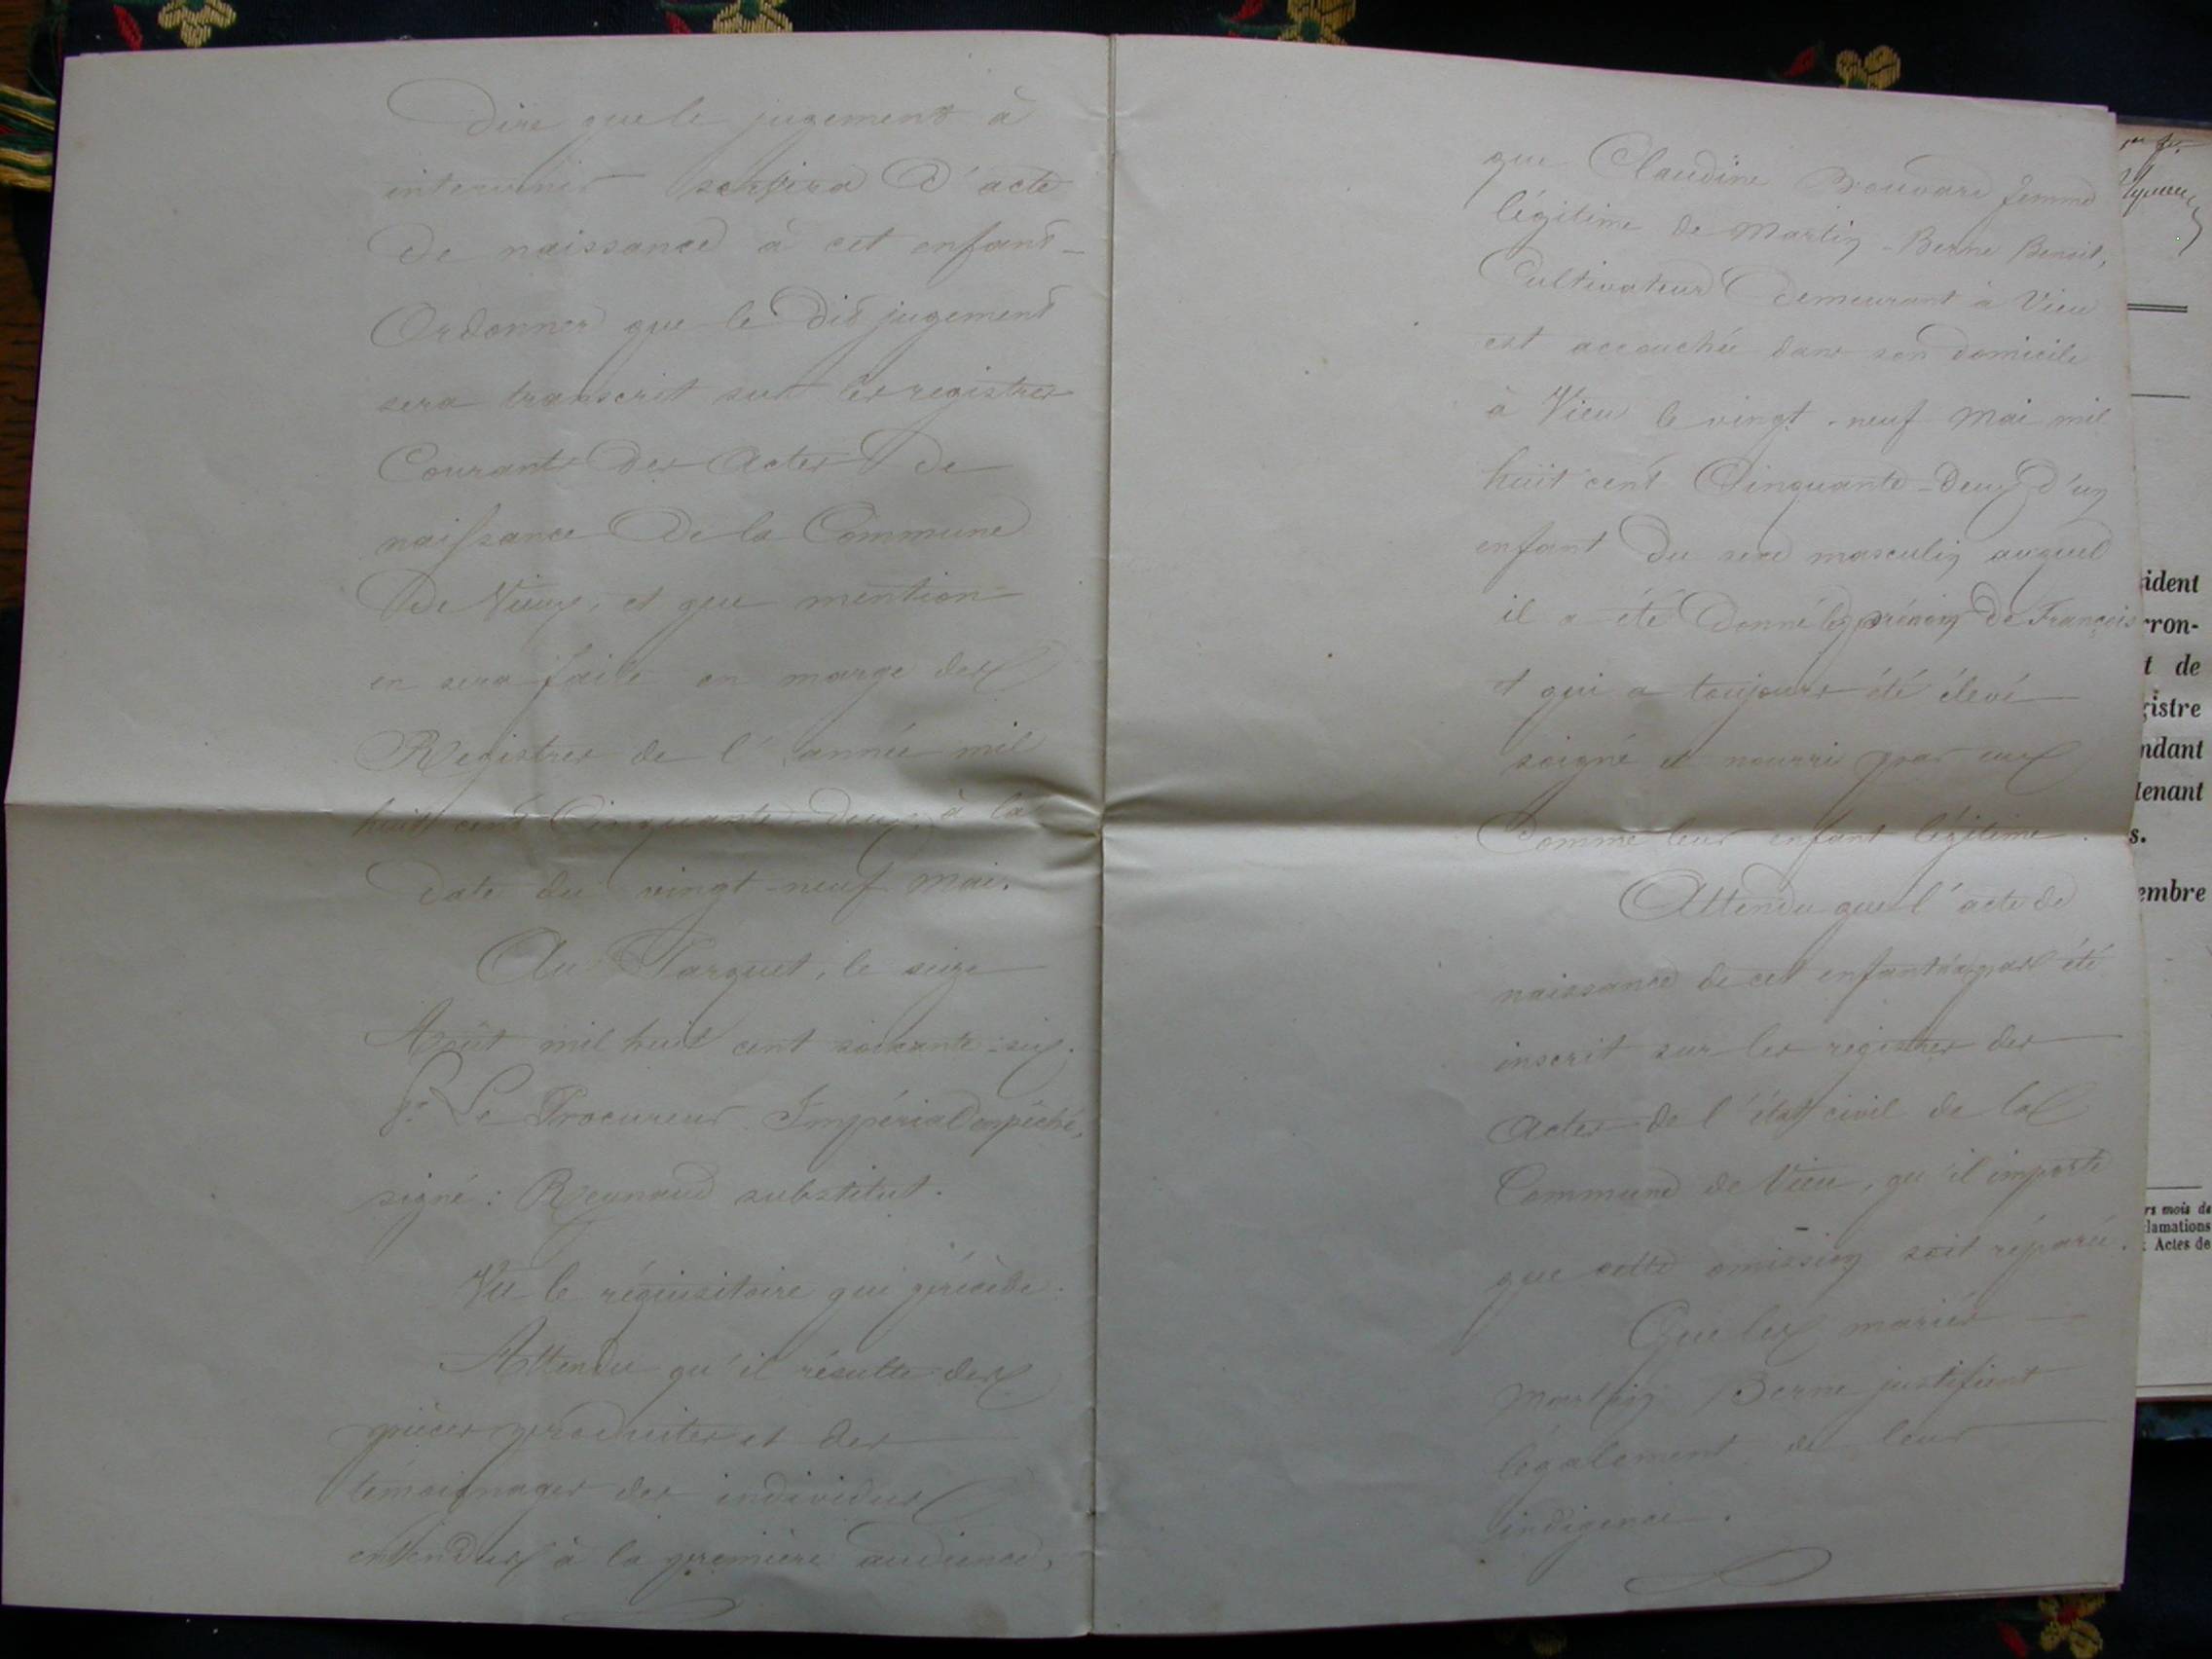 Dire que le jugement à
intervenir servira d'acte
de naissance à cet enfant -
Ordonner que le dit jugement
sera transcrit sur les registres
Courants des Actes de
naissance de la Commune
de Vieux, et que mention
en sera faite en marge des
Registres de l'année mil
huit cent Cinquante-deux, à la
date du vingt-neuf mai.
Au Parquet, le seize
Août mil huit cent soixante-six.
Pr Le Procureur Impérial empêché,
signé : Reynaud substitut.
Vu le réquisitoire qui précède.
Attendu qu'il résulte des
pièces produites et des
témoignages des individus
entendus à la première audience,
que Claudine Bouvard femme
légitime de Martin-Berne Benoit,
Cultivateur demeurant à Vieu
est accouchée dans son domicile
à Vieu le vingt-neuf Mai mil
huit cent Cinquante-deux d'un
enfant du sexe masculin auquel
il a été donné les prénom de François
et qui a toujours été élevé
soigné et nourri par eux
Comme leur enfant légitime.
Attendu que l'acte de
naissance de cet enfant n'a pas été
inscrit sur les registres des
Actes de l'état civil de la
Commune de Vieu, qu'il importe
que cette omission soit réparée.
Que les mariés
Martin Berne justifient
légalement de leur
indigence.
ident
rron-
t de
istre
ndant
tenant
s.
embre
rs mois de
clamations
Actes de